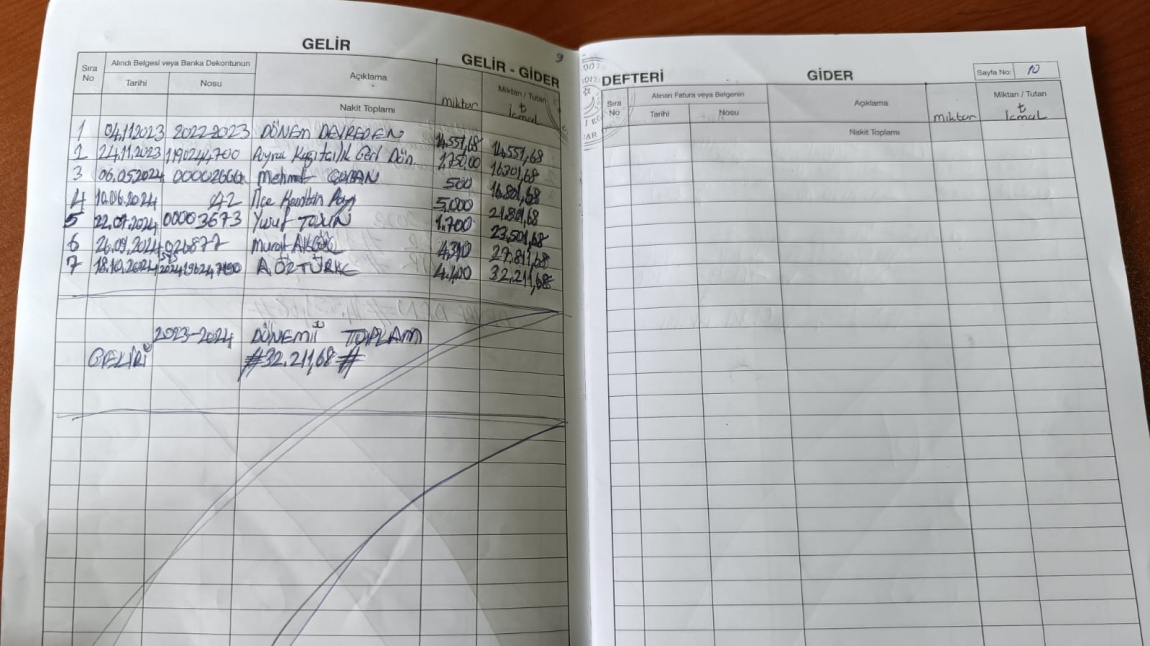 GELİR
9
GELİR - GİDER
Sıra No
Alındı Belgesi veya Banka Dekontunun
Tarihi
Nosu
Açıklama
Miktarı / Tutarı
Nakit Toplamı
miktar
t
İcmal
1 04.11.2023 2022-2023 DÖNEM DEVREDEN 14.551,68 14.551,68
2 24.11.2023 Kağıtçılık Geri Dön 1.750,00 16.301,68
3 06.05.2024 00002666 Mehmet 500 16.801,68
4 10.06.2024 A2 İlçe Payı 5.000 21.801,68
5 22.07.2024 00003673 Yusuf 1.700 23.501,68
6 26.09.2024 026877 Murat 4.310 27.811,68
7 18.10.2024 A ÖZTÜRK 4.400 32.211,68
2023-2024 DÖNEMİ TOPLAM
GELİRİ #32.211,68#
DEFTERİ
GİDER
Sayfa No: 10
Sıra No
Alınan Fatura veya Belgenin
Tarihi
Nosu
Açıklama
Miktarı / Tutarı
Nakit Toplamı
miktar
t
İcmal